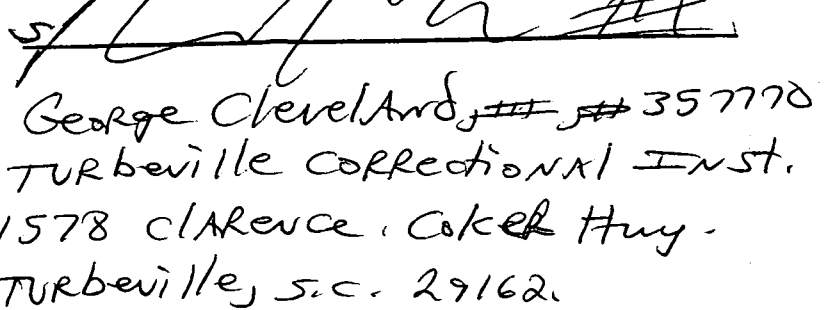 S/
George Cleveland, III, # 357770
Turbeville Correctional Inst.
1578 Clarence. Coker Hwy.
Turbeville, S.C. 29162.